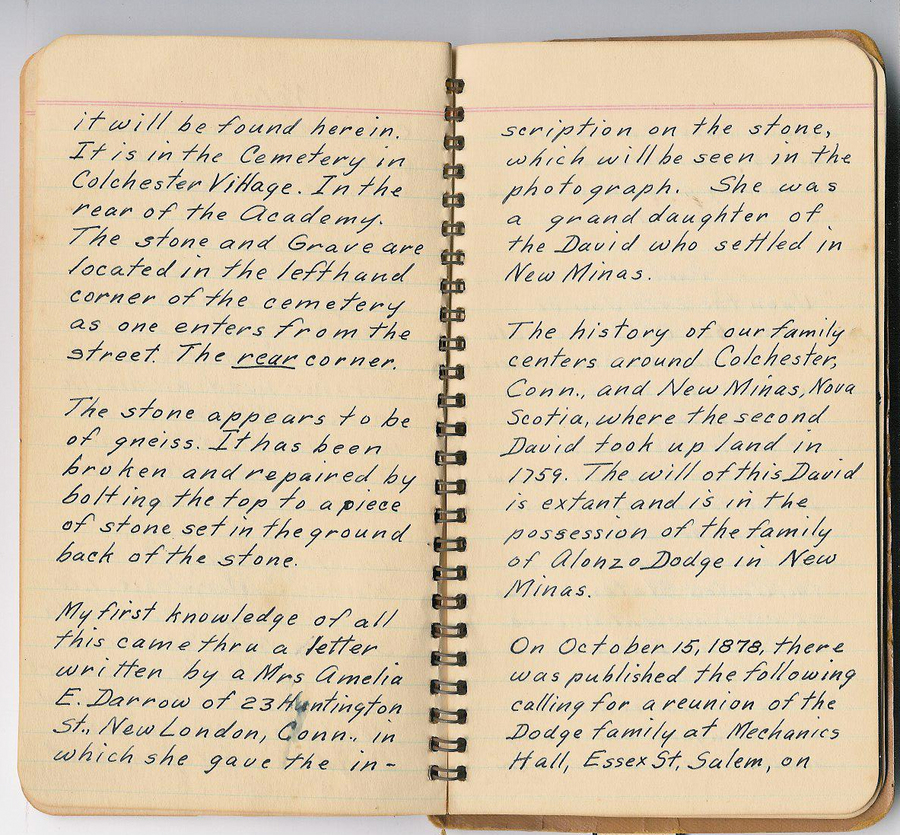 it will be found herein.
It is in the Cemetery in
Colchester Village. In the
rear of the Academy.
The stone and Grave are
located in the left hand
corner of the cemetery
as one enters from the
street. The rear corner.
The stone appears to be
of gneiss. It has been
broken and repaired by
bolting the top to a piece
of stone set in the ground
back of the stone.
My first knowledge of all
this came thru a letter
written by a Mrs Amelia
E. Darrow of 23 Huntington
St., New London, Conn., in
which she gave the in-
scription on the stone,
which will be seen in the
photograph. She was
a grand daughter of
the David who settled in
New Minas.
The history of our family
centers around Colchester,
Conn., and New Minas, Nova
Scotia, where the second
David took up land in
1759. The will of this David
is extant and is in the
possession of the family
of Alonzo Dodge in New
Minas.
On October 15, 1878, there
was published the following
calling for a reunion of the
Dodge family at Mechanics
Hall, Essex St, Salem, on